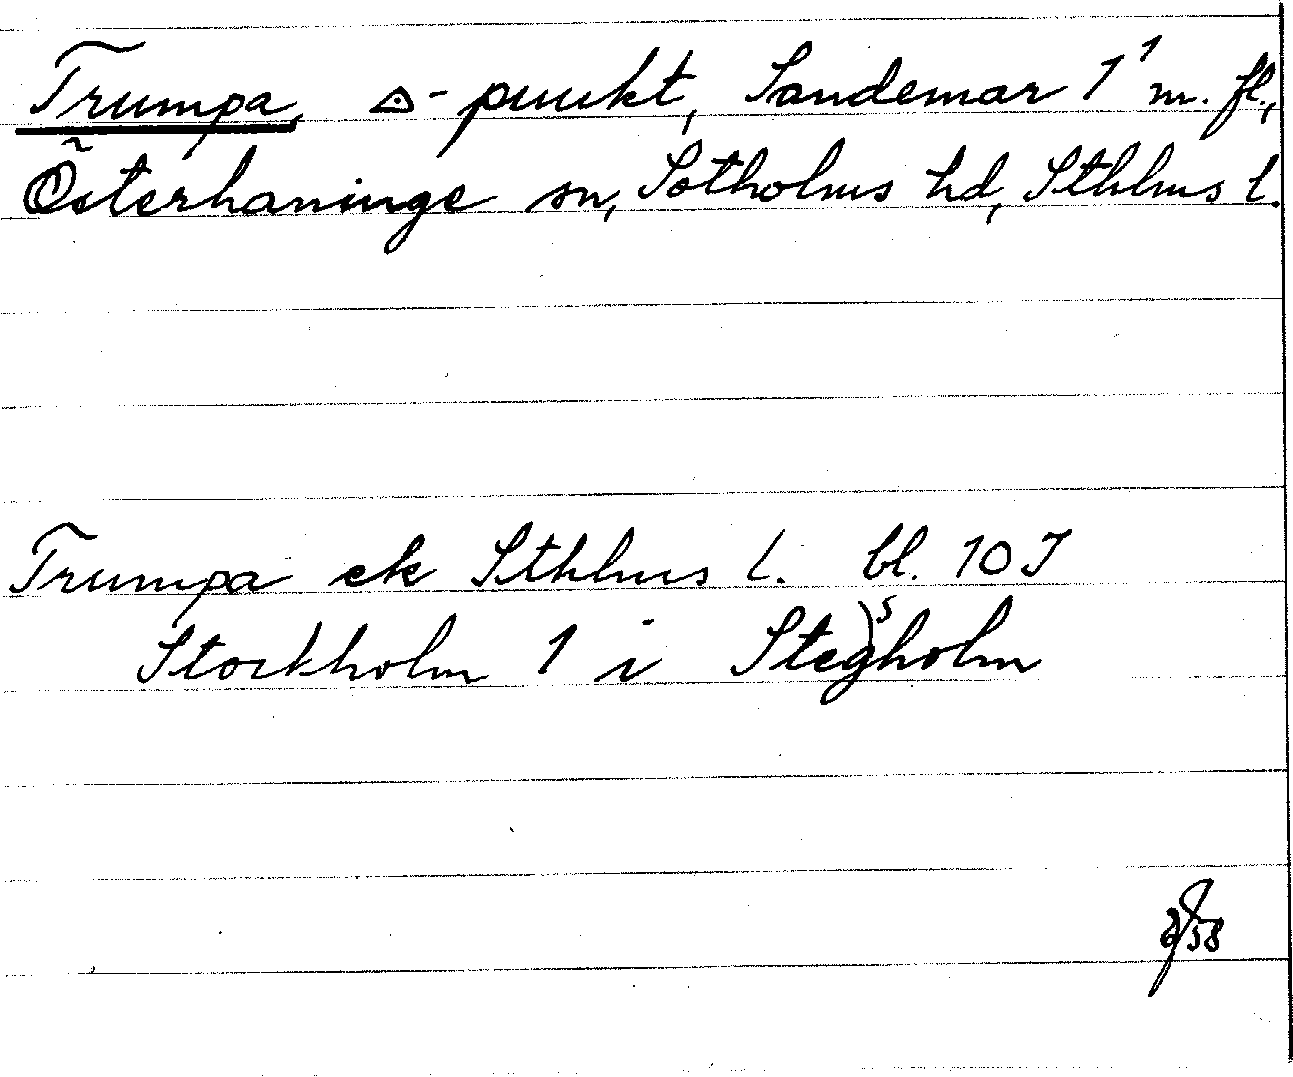 Trumpa, ◬-punkt, Sandemar 1¹ m. fl,
Österhaninge sn, Sotholms hd, Sthlms l.
Trumpa ek Sthlms l. bl. 10 I
Stockholm 1 i Stegsholm